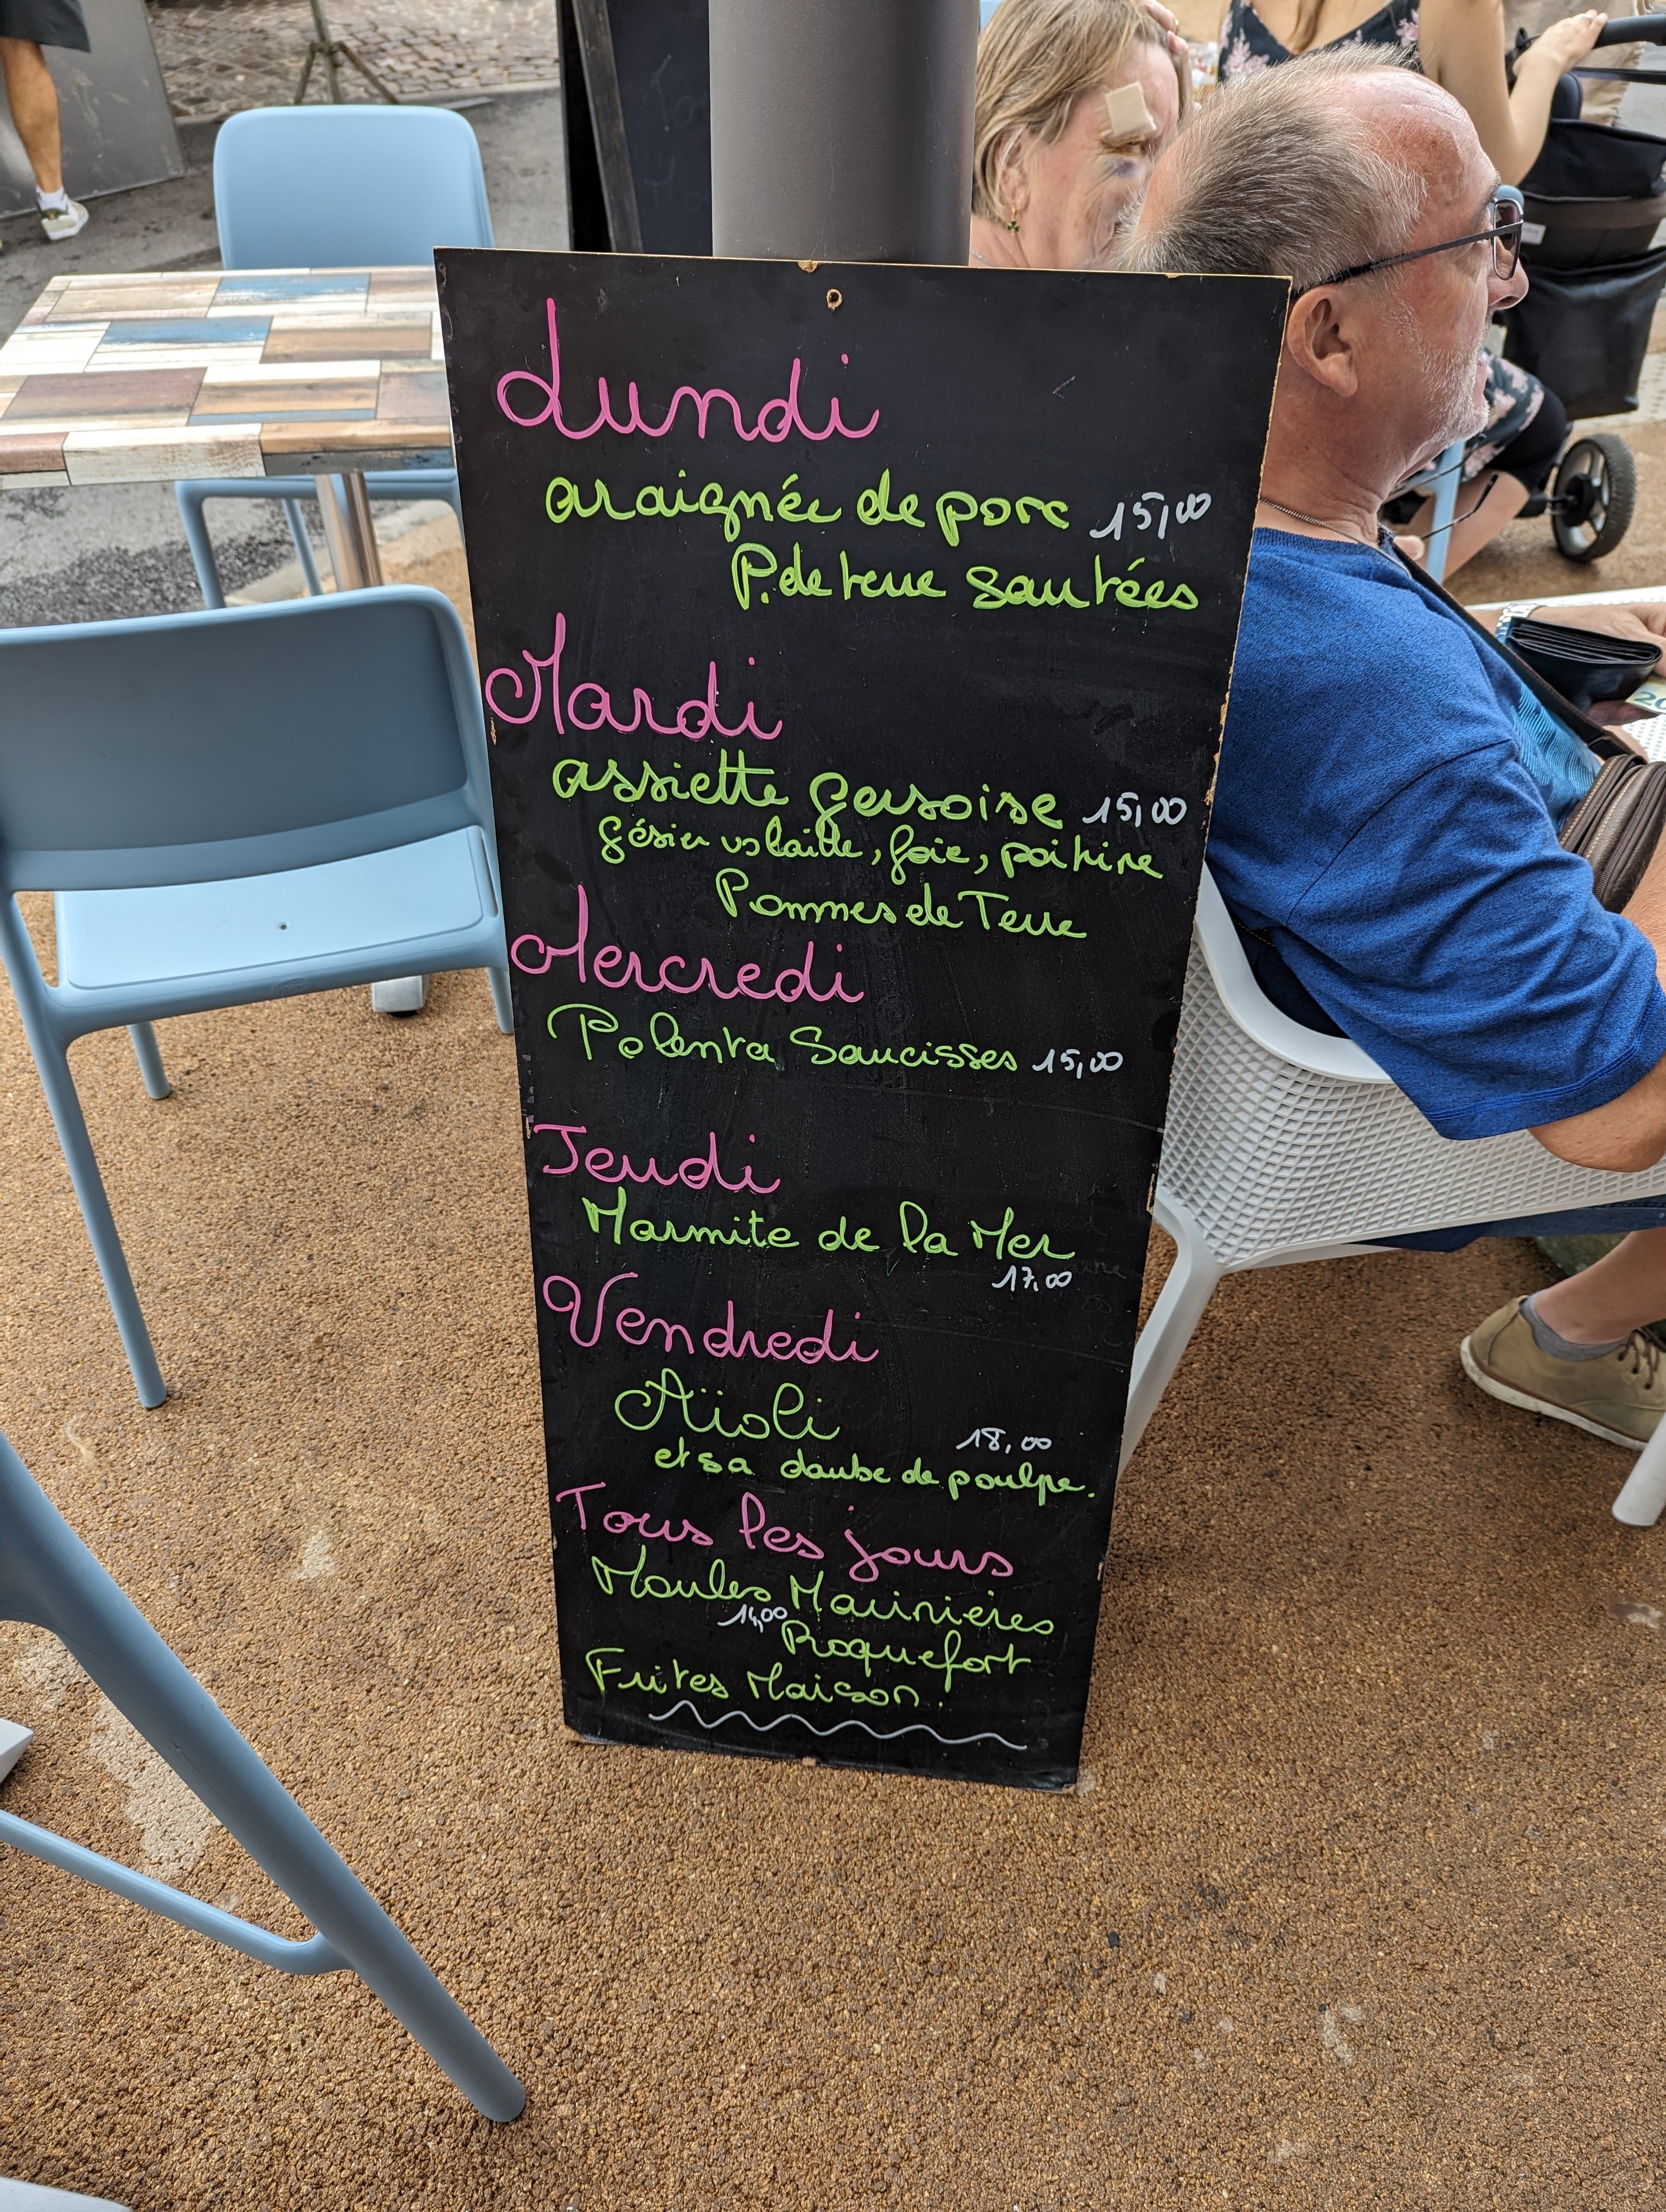 Lundi
araignée de porc 15,00
P. de terre sautées
Mardi
assiette gersoise 15,00
gésier volaille, foie, poitrine
Pommes de Terre
Mercredi
Polenta Saucisses 15,00
Jeudi
Marmite de la Mer
17,00
Vendredi
Aïoli 18,00
et sa daube de poulpe.
Tous les jours
Moules Marinières
14,00 Roquefort
Frites Maison.
20